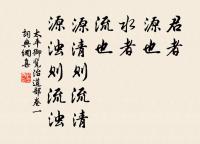 君者
源也
水者
流也
源清则流清
源浊则流浊
太平御覽治道部卷一